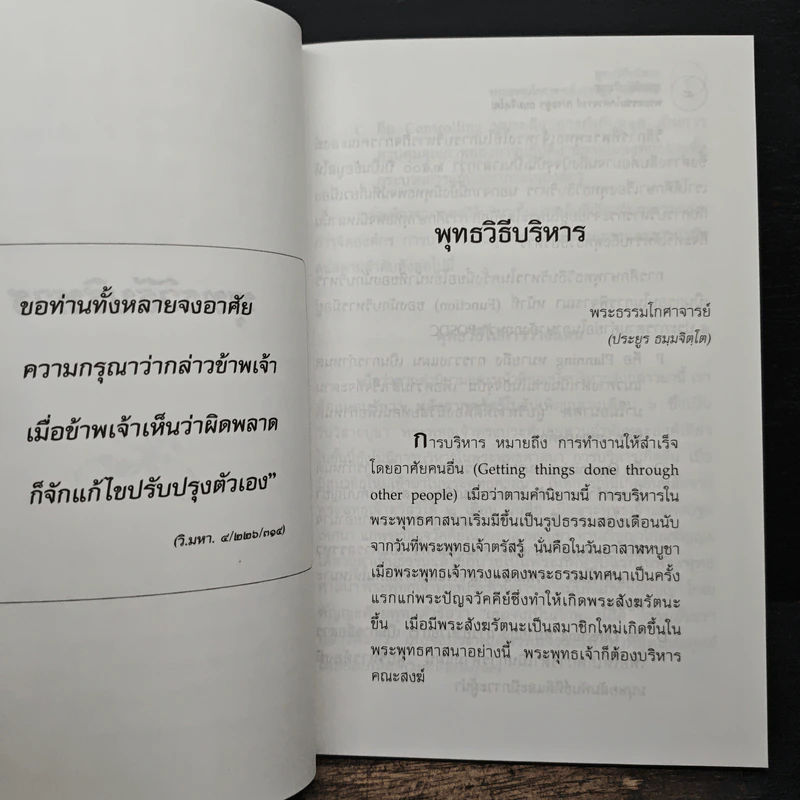 ขอท่านทั้งหลายจงอาศัย
ความกรุณาว่ากล่าวข้าพเจ้า
เมื่อข้าพเจ้าเห็นว่าผิดพลาด
ก็จักแก้ไขปรับปรุงตัวเอง”
(วิ.มหา. ๔/๒๒๖/๓๑๔)
พุทธวิธีบริหาร
พระธรรมโกศาจารย์
(ประยูร ธมฺมจิตฺโต)
การบริหาร หมายถึง การทำงานให้สำเร็จ
โดยอาศัยคนอื่น (Getting things done through
other people) เมื่อว่าตามคำนิยามนี้ การบริหารใน
พระพุทธศาสนาเริ่มมีขึ้นเป็นรูปธรรมสองเดือนนับ
จากวันที่พระพุทธเจ้าตรัสรู้ นั่นคือในวันอาสาฬหบูชา
เมื่อพระพุทธเจ้าทรงแสดงพระธรรมเทศนาเป็นครั้ง
แรกแก่พระปัญจวัคคีย์ซึ่งทำให้เกิดพระสังฆรัตนะ
ขึ้น เมื่อมีพระสังฆรัตนะเป็นสมาชิกใหม่เกิดขึ้นใน
พระพุทธศาสนาอย่างนี้ พระพุทธเจ้าก็ต้องบริหาร
คณะสงฆ์